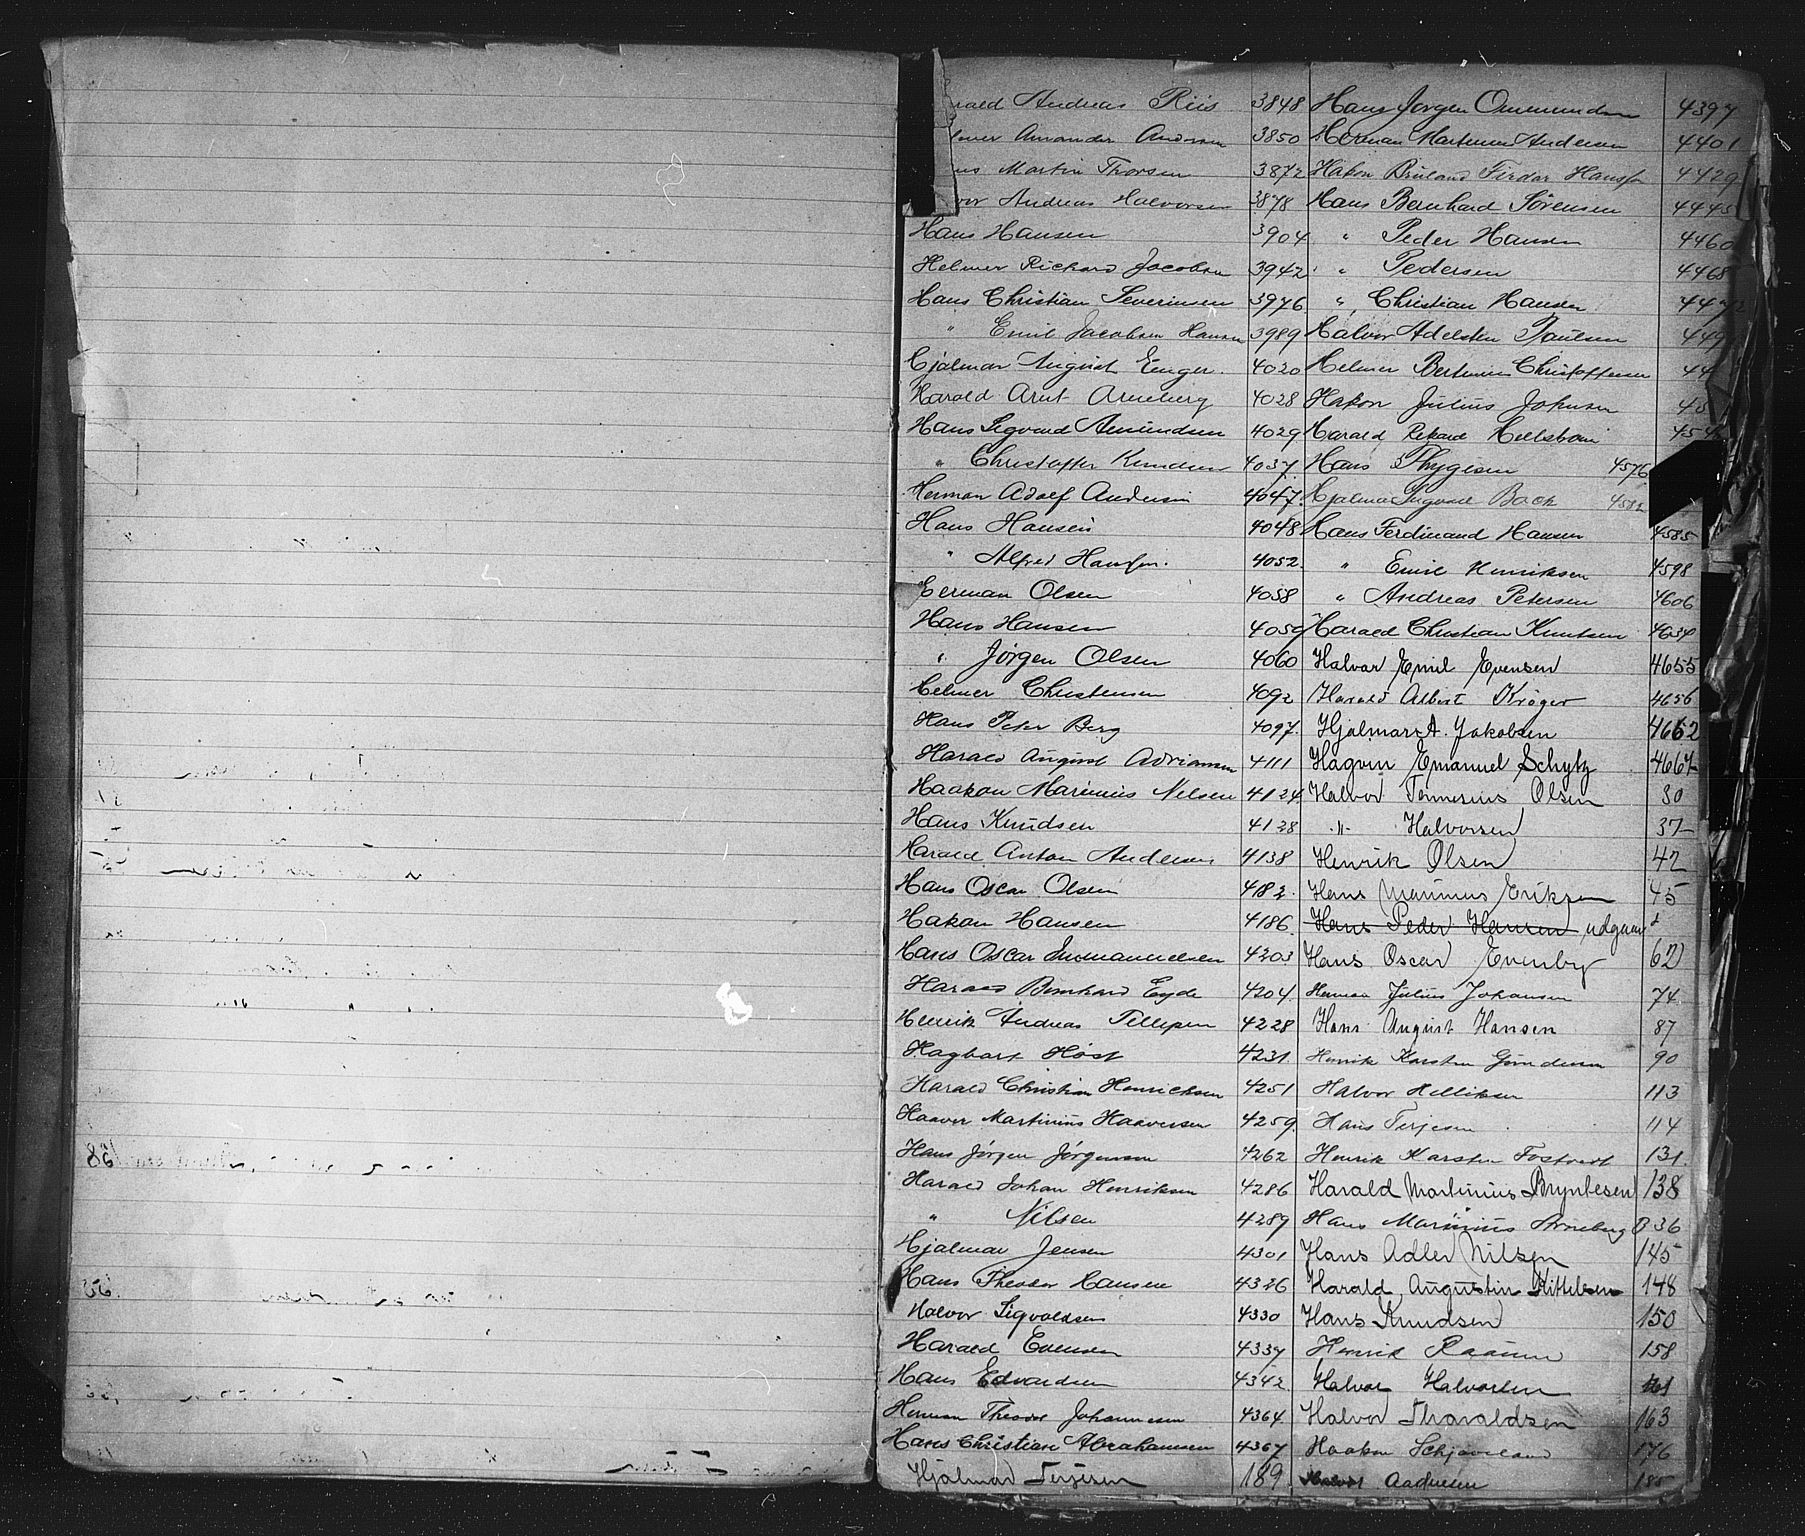 Andreas Riis 3848
Amandus 3850
Martin Thorsen 3872
Andreas Halvorsen 3878
Hans Hansen 3904
Helmer Richard Jacobsen 3942
Hans Christian Severinsen 3976
" Emil Jacobsen Hansen 3989
Hjalmar August Enger 4020
Harald Arnt Arneberg 4028
Hans Sigvard Amundsen 4029
" Christoffer Knudsen 4037
Herman Adolf Andersen 4047
Hans Hansen 4048
" Alfred Hansen 4052
Herman Olsen 4058
Hans Hansen 4059
" Jørgen Olsen 4060
Helmer Christensen 4092
Hans Peter Berg 4097
Harald August Adriansen 4111
Haakon Marinius Nilsen 4124
Hans Knudsen 4128
Harald Anton Andersen 4138
Hans Oscar Olsen 4182
Hakon Hansen 4186
Hans Oscar Emanuelsen 4203
Harald Bernhard Eyde 4204
Henrik Andreas Tellefsen 4228
Hagbart Høst 4231
Harald Christian Henricksen 4251
Haaver Martinius Haaversen 4259
Hans Jörgen Jörgensen 4262
Harald Johan Henriksen 4286
" Nilsen 4289
Hjalmar Jensen 4301
Hans Theodor Hansen 4326
Halvor Sigvaldsen 4330
Harald Evensen 4337
Hans Edvardsen 4342
Herman Theodor Johannesen 4364
Hans Christian Abrahamsen 4367
Hjalmar Terjesen 189
Hans Jørgen 4397
Herman Martinius Andersen 4401
Hakon Firdar Hansen 4429
Hans Bernhard Sørensen 4445
" Peder Hansen 4460
" Pedersen 4468
" Christian Hansen 4472
Halvor Adelsten Paulsen 449
Helmer Christoffersen 44
Hakon Julius Johnsen 45
Harald Rikard 454
Hans Thygesen 4576
Hjalmar Sigvald Back 4582
Hans Ferdinand Hansen 4585
" Emil Henriksen 4598
" Andreas Petersen 4606
Harald Christian Knutsen 4634
Halvar Emil Evensen 4655
Harald Albert Krøger 4656
Hjalmar A. Jakobsen 4662
Hagvin Emanuel Schytz 4667
Halvor Tønnesius Olsen 30
" Halvorsen 37
Henrik Olsen 42
Hans Marinus Eriksen 45
Hans Peder Hansen udgaar
Hans Oscar Evenby 62
Herman Julius Johansen 74
Hans August Hansen 87
Henrik Karsten Gundersen 90
Halvor Helliksen 113
Hans Terjesen 114
Henrik Karsten Fostvedt 131
Harald Martinius Bryntesen 138
Hans Marinius Arneberg 36
Hans Adler Nilsen 145
Harald Augustin Kittelsen 148
Hans Knudsen 150
Henrik Raaum 158
Halvor Halvorsen 161
Halvor Tharaldsen 163
Haakon Schjaveland 176
Halvor Aadnesen 185